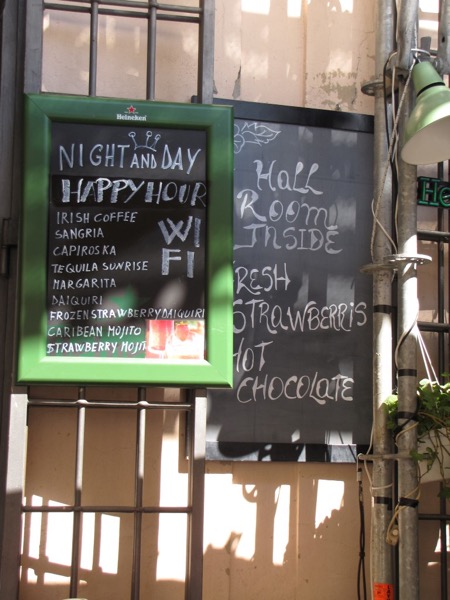 Heineken
NIGHT AND DAY
HAPPY HOUR
IRISH COFFEE
SANGRIA
CAPIROSKA
TEQUILA SUNRISE
MARGARITA
DAIQUIRI
FROZEN STRAWBERRY DAIQUIRI
CARIBEAN MOJITO
STRAWBERRY MOJIT
WI
FI
Hall
Room
INSIDE
RESH
STRAWBERRIS
HOT
CHOCOLATE
He